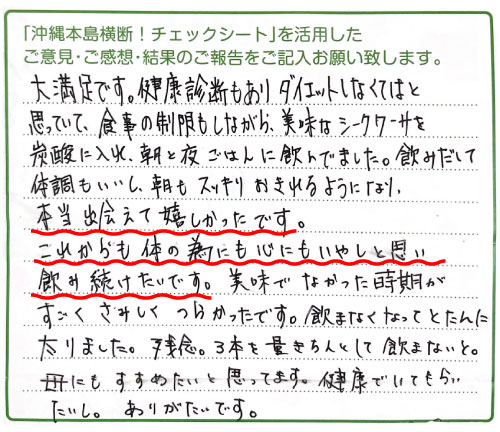 「沖縄本島横断！チェックシート」を活用した
ご意見・ご感想・結果のご報告をご記入お願い致します。
大満足です。健康診断もありダイエットしなくてはと
思っていて、食事の制限もしながら、美味なシークワーサを
炭酸に入れ、朝と夜ごはんに飲んでました。飲みだして
体調もいいし、朝もスッキリおきれるようになり、
本当出会えて嬉しかったです。
これからも体の為にも心にもいやしと思い
飲み続けたいです。美味でなかった時期が
すごくさみしくつらかったです。飲まなくなってとたんに
太りました。残念。3本を量きちんとして飲まないと。
母にもすすめたいと思ってます。健康でいてもらい
たいし。ありがたいです。